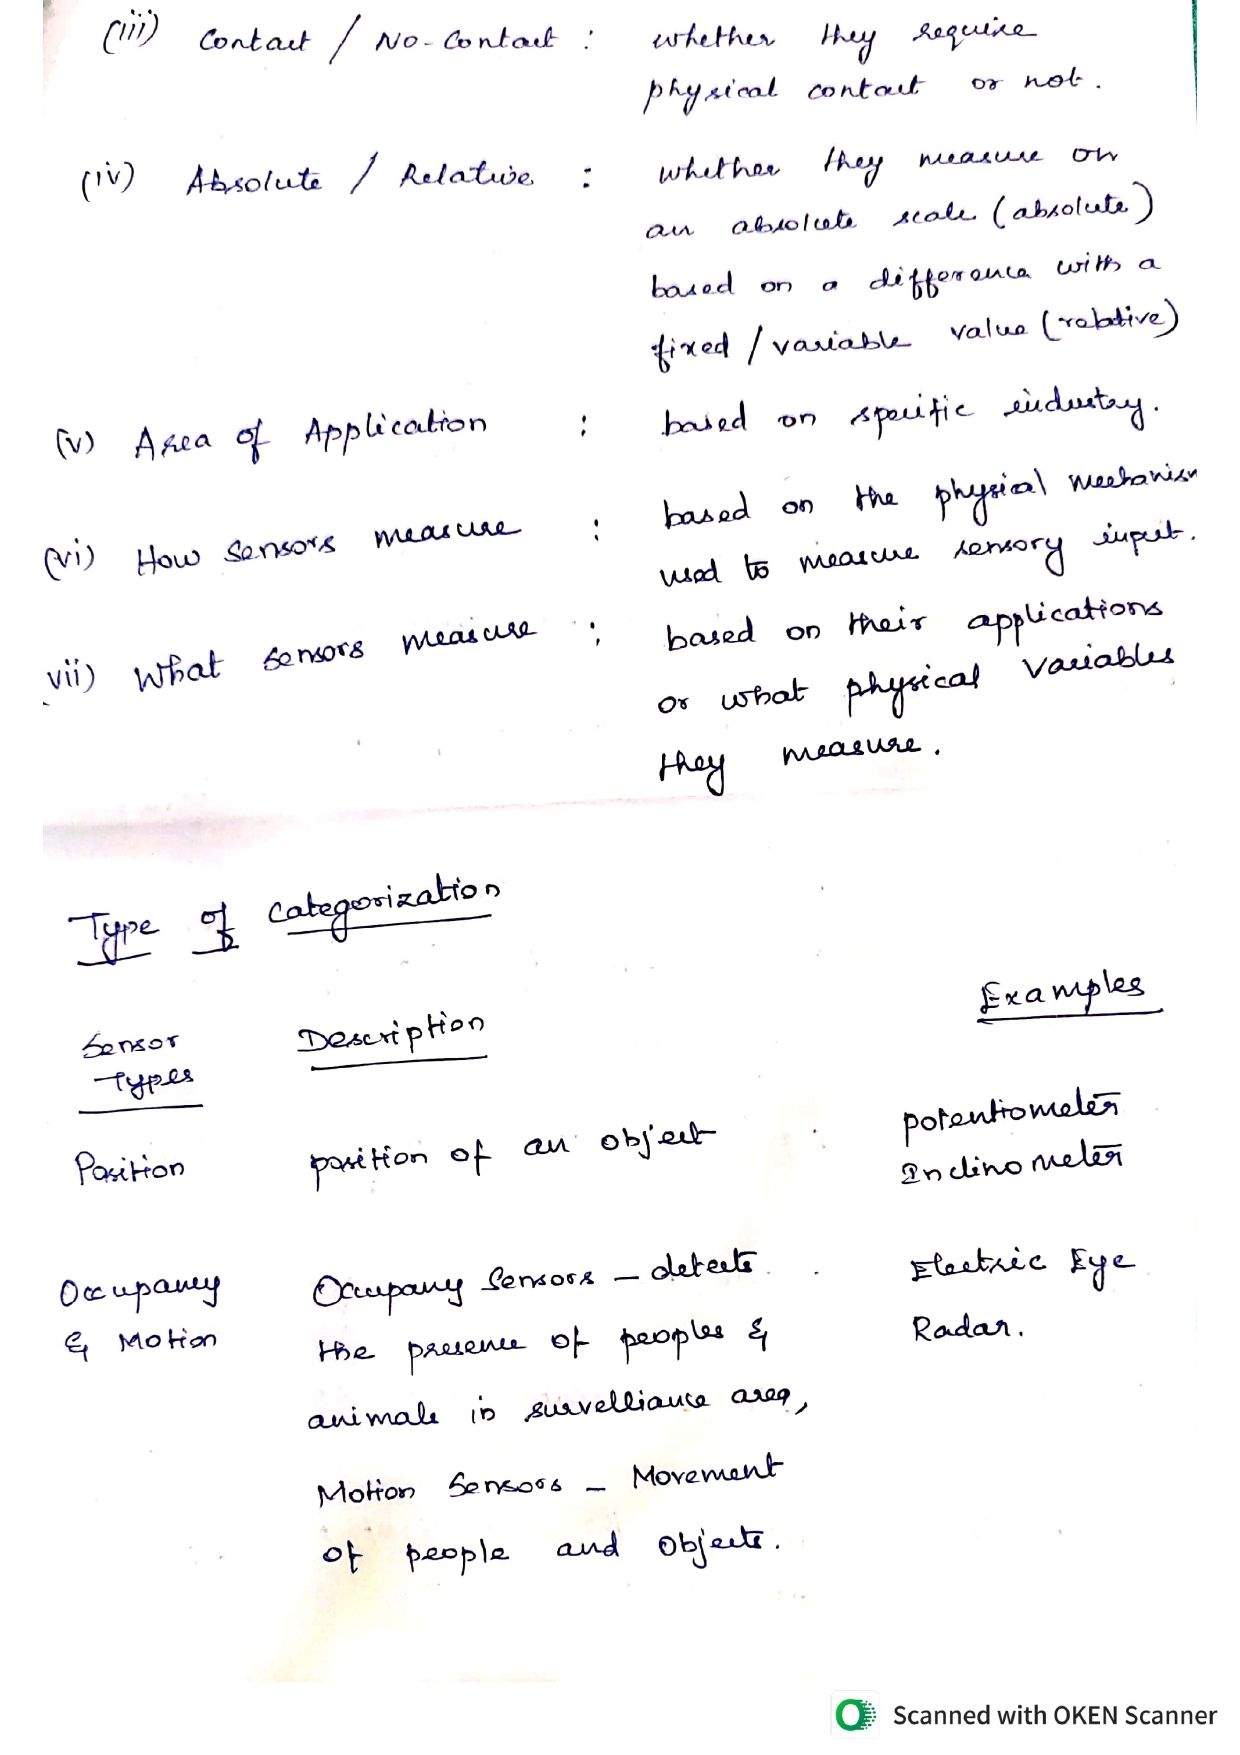 (iii) Contact / No-Contact : whether they require
physical contact or not.
(iv) Absolute / Relative : whether they measure on
an absolute scale (absolute)
based on a difference with a
fixed / variable value (relative)
(v) Area of Application : based on specific industry.
(vi) How sensors measure : based on the physical mechanism
used to measure sensory input.
vii) What sensors measure : based on their applications
or what physical variables
they measure.
Type of Categorization
Sensor Types Description Examples
Position position of an object potentiometer
Inclinometer
Occupancy Occupany Sensors – detects Electric Eye
& Motion the presence of peoples & Radar.
animals in survelliance area,
Motion Sensors – Movement
of people and objects.
Scanned with OKEN Scanner